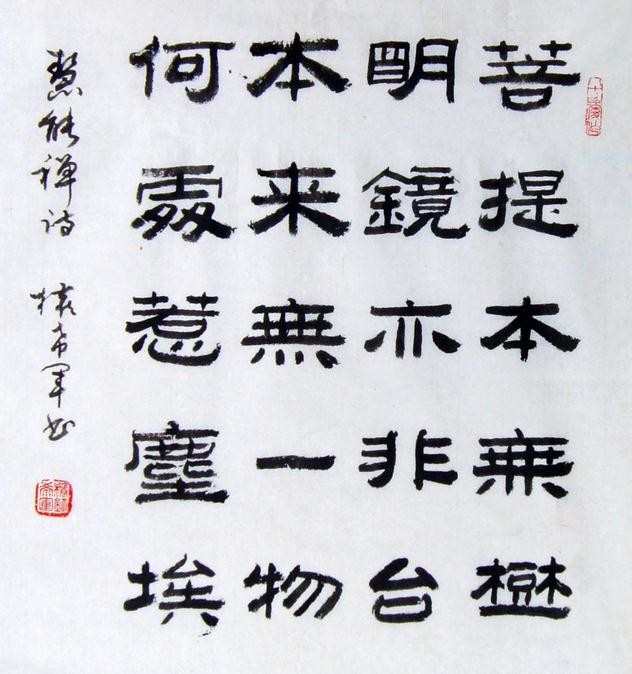 菩提本無樹
明鏡亦非台
本来無一物
何處惹塵埃
慧能禅诗 希军书